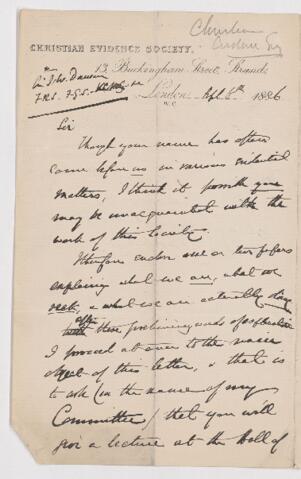 Christian
Evidence Soc
CHRISTIAN EVIDENCE SOCIETY,
13, Buckingham Street, Strand,
Sir J. W. Dawson
F.R.S. F.G.S.
London Sept 8th 1886
W.C.
Sir
Though your name has often
come before us in various evidential
matters, I think it possible you
may be unacquainted with the
work of this Society.
I therefore enclose one or two papers
explaining what we are, what we
seek, & what we are actually doing
after these preliminary words of
I proceed at once to the main
object of this letter, & that is
to ask (in the name of my
Committee) that you will
give a lecture at the Hall of